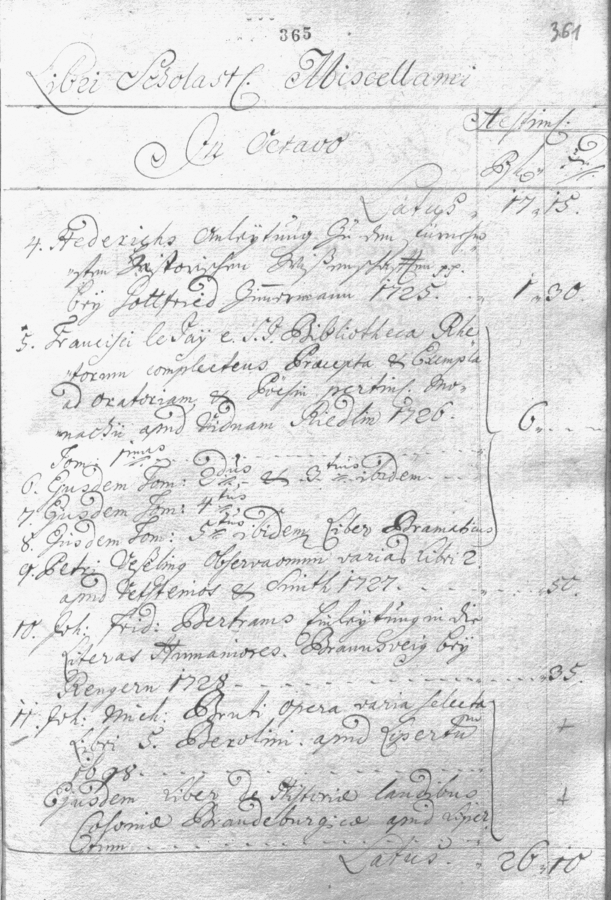 365
361
Libri Scholast: Miscellanei
Aestim:
In Octavo
Latus " 17 " 15.
4. Hederichs Anleytung zu den fürnehm
sten Historischen Wißenschafften pp.
bey Gottfried Zimermann 1725. " 1 " 30.
5. Francisci le Jay e. S.J. Bibliotheca Rhe
torum complectens Praecepta & Exempla
ad oratoriam & Poësin pertin: Mo-
nachii apud Viduam Riedlin 1726. 6
Tom: 1mus
6. Ejusdem Tom: 2dus & 3tius ibidem
7. Ejusdem Tom: 4tus
8. Ejusdem Tom: 5tus ibidem Liber Dramaticus
9. Petri Weseling Observaonum varias Libri 2.
apud Wetstenios & Smith 1727. 50.
10. Joh. Frid: Bertrams Einleytung in die
Literas Humaniores. Braunsveig bey
Rengern 1728 35.
11. Joh: Mich: Bruti opera varia selecta
Libri 5. Berolini. apud Lipertu +
1698.
Ejusdem Liber de Historiae laudibus +
Coloniae Brandeburgicae apud Liper
tum
Latus. " 26 " 10